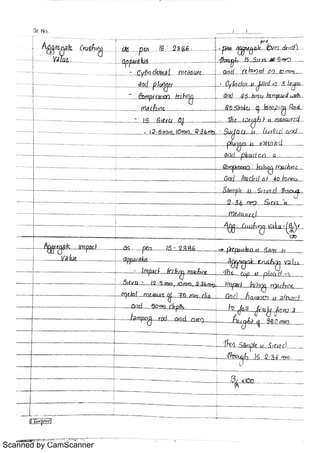 Sr. No.
Aggregate Crushing
Value
as per IS 2386
apparatus
- Cylindrical measure
and plunger
- Compression testing
machine
- IS Sieves of
- 12.5mm, 10mm, 2.36mm
(oven dried)
through IS Sieve
and retained on 10mm
- Cylinder is filled in 3 layers
and 25 times tamped with
25 Strokes of tamping Rod
The weight is measured
Surface is levelled and
plunger is
and placed on a
Compression testing machine
and loaded at 40 tonnes
Sample is Sieved through
2.36 mm Sieve is
measured
Agg Crushing value =
x100
Aggregate impact
Value
as per IS - 2386
apparatus
- Impact testing machine
Sieves - 12.5mm, 10mm, 2.36mm
metal measure of 75 mm dia
and 50mm depth
tamping rod and oven
→ preparation is Same as
aggregate crushing value
The cup is placed in
impact testing machine
and hammer is allowed
to fall freely from a
height of 380mm
Then Sample is Sieved
through IS 2.36 mm
x100
Scanned by CamScanner